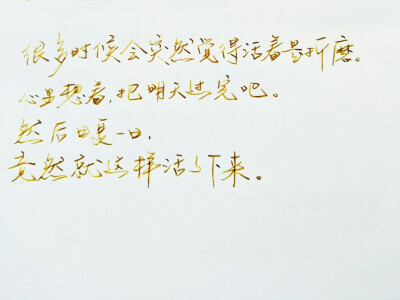 很多时候会突然觉得活着是折磨。
心里想着,把明天过完吧。
然后日复一日,
竟然就这样活了下来。